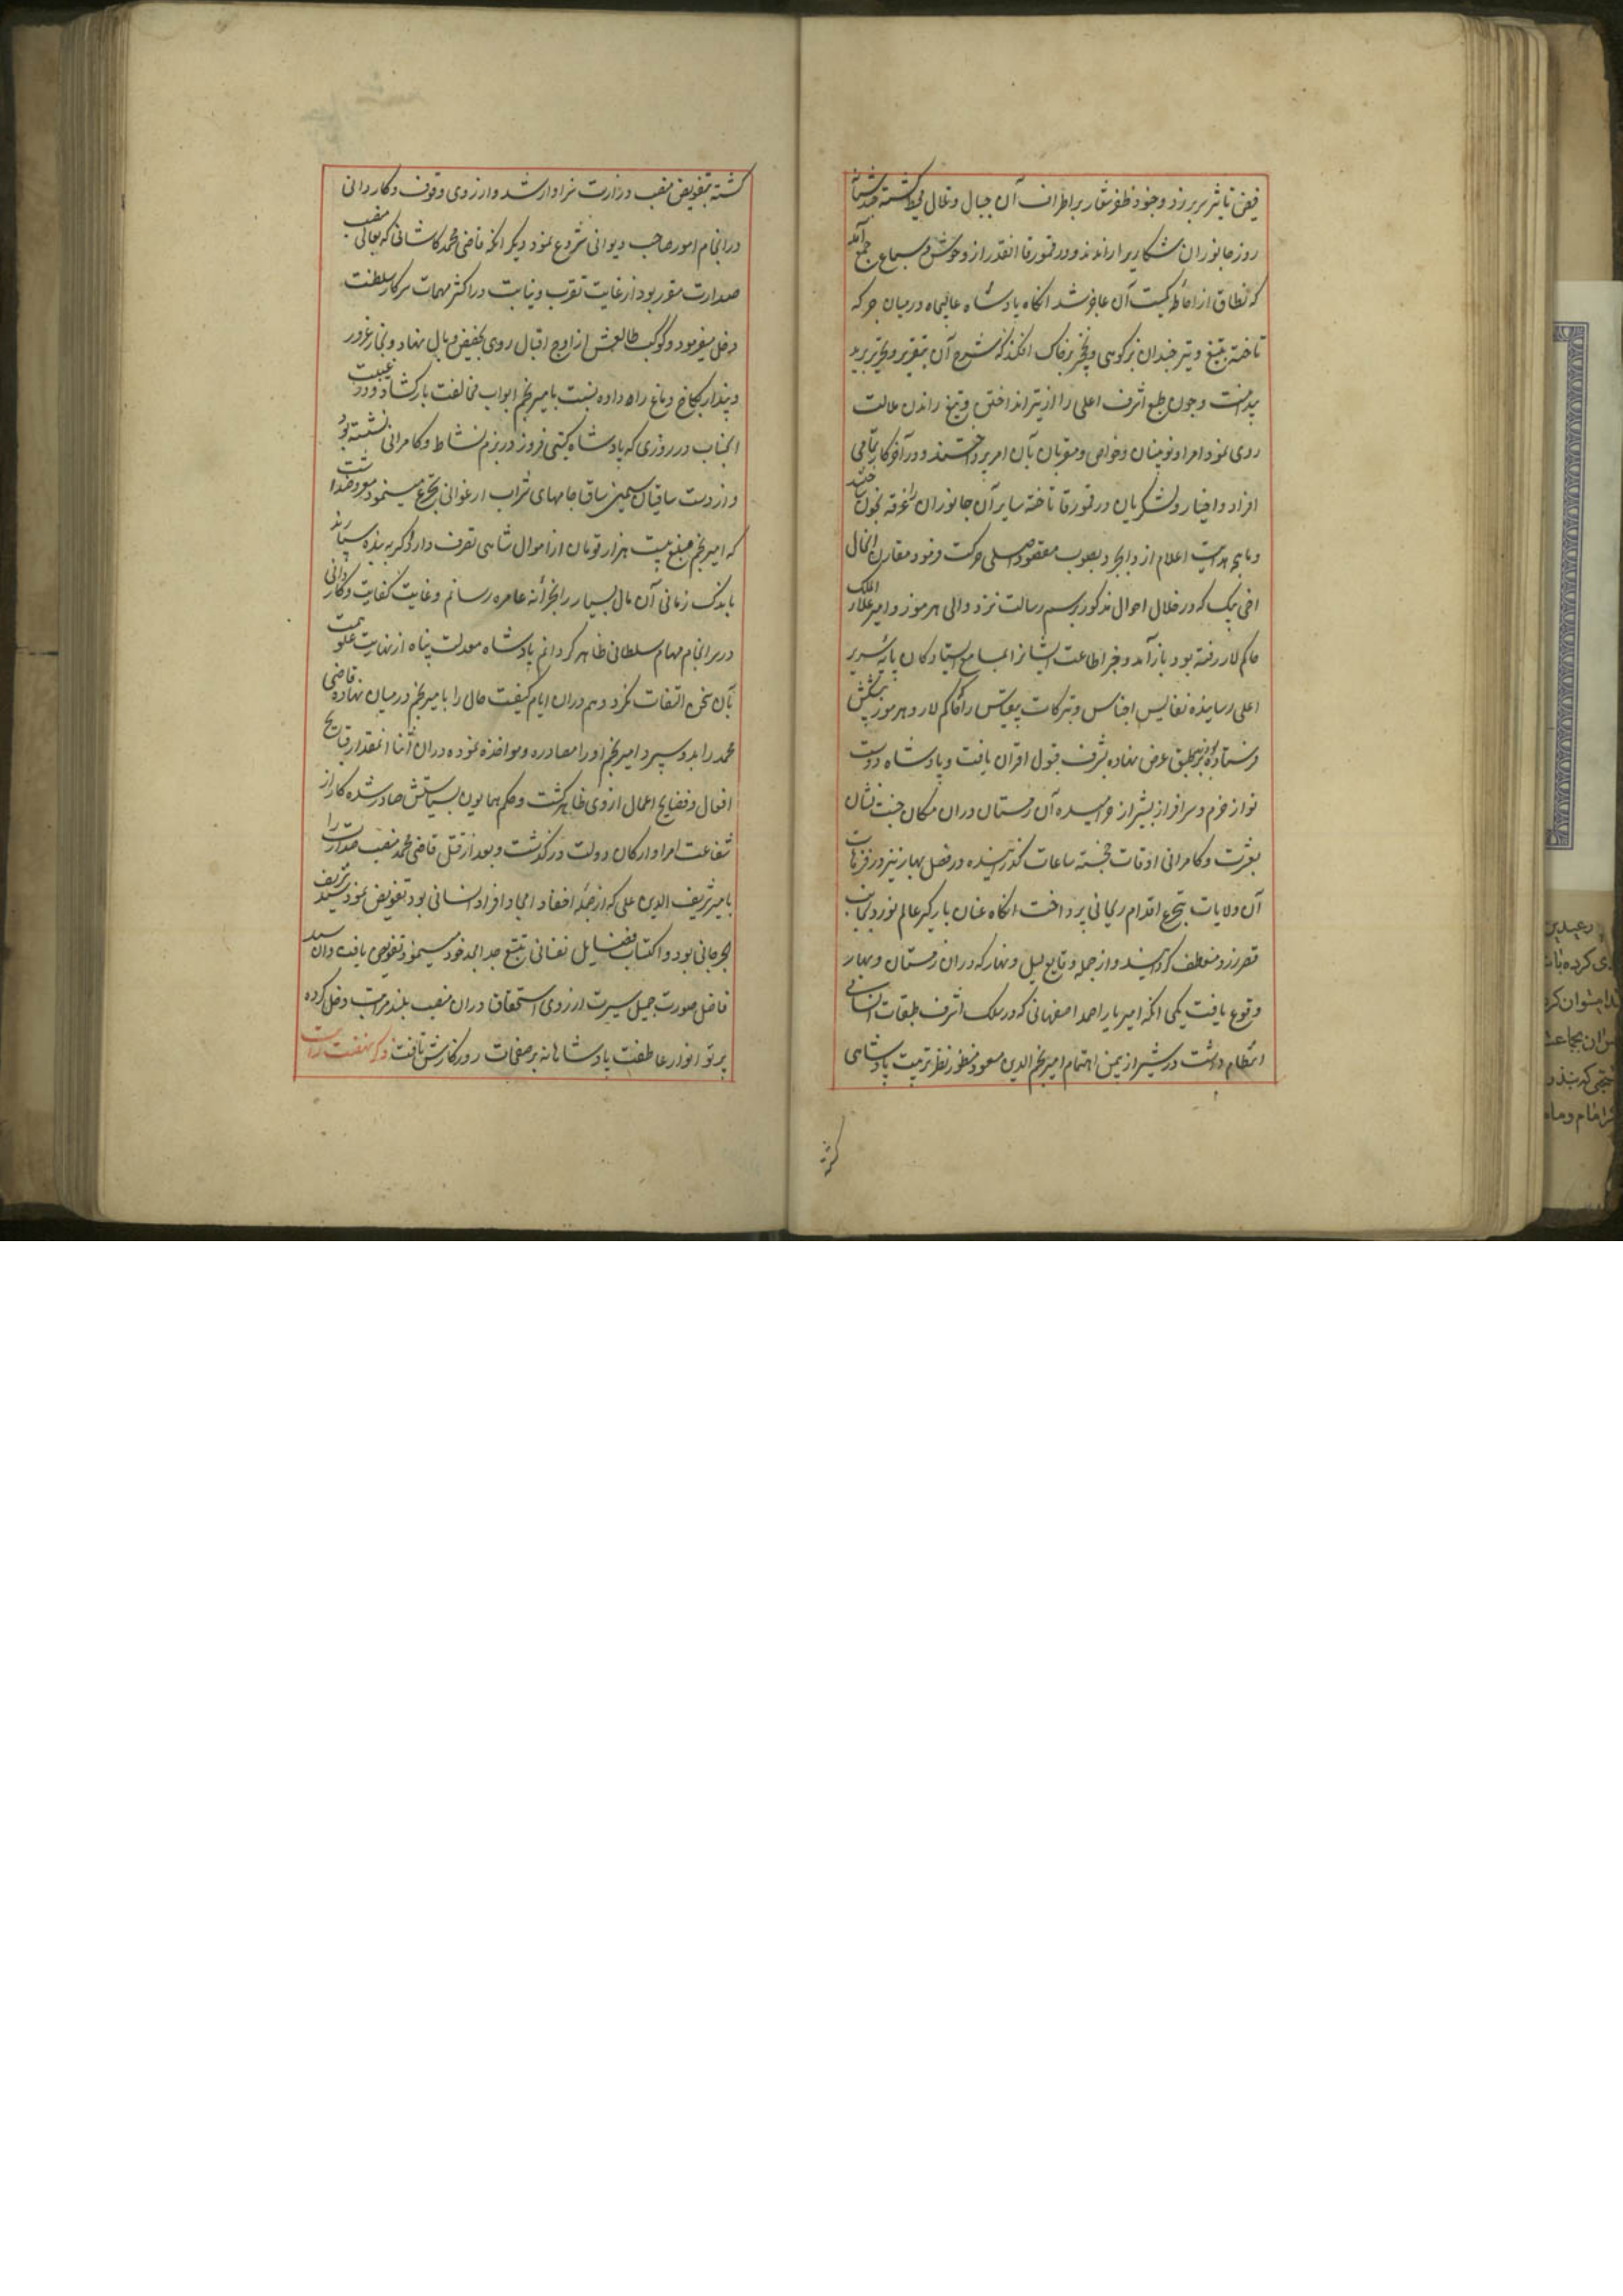 فیض تاثیر سر بر زد وجنود ظفر شعار بر اطراف آن جبال وتلال محیط کشته چند شبانه
روز جانوران شکاریرا راندند و در قمورقا انقدر از وحوش و سباع جمع آمد
که نطاق از احاطه کمیت آن عاجز شد انکاه پادشاه عالیجاه در میان جرکه
تاخته بتیغ و تیر چندان بز کوهی ونخجیر بر خاک افکند که شرح آن بتقریر وتحریر
پیوست وچون طبع اشرف اعلی را از تیر انداختن وتیغ راندن ملالت
روی نمود امرا ونوینان وخواص ومقربان بآن امر پرداختند ودر آخر کار تمامی
افراد واخیار ولشکریان در قورقا تاخته سایر آن جانوران را غرقه بخون ساختند
وماهچه هدایت اعلام از دارابجرد بصوب مقصود اصلی حرکت فرمود مقارن انحال
اخی بیک که در خلال احوال مذکور برسم رسالت نزد والی هرموز وامیر علاء الملک
حاکم لار رفته بود باز آمد وخبر اطاعت ایشانرا بمسامع ایستادکان پایه سریر
اعلی رسانیده نفایس اجناس وتبرکات که حاکم لار وهرموز پیشکش
فرستاده بودند بر طبق عرض نهاده بشرف قبول اقران یافت وپادشاه دوست
نواز خرم وسرافراز بشیراز خرامیده آن زمستان دران مکان جنت نشان
بعشرت وکامرانی اوقات خجسته ساعات کذرانیده در فصل بهار نیز در نزهات
آن ولایات بتجرع اقدام ریحانی پرداخت انکاه عنان بارکیر عالم نورد بجانب
قصر زرد منعطف کردانیده واز جمله وقایع لیل ونهار که دران زمستان وبهار
وقوع یافت یکی انکه امیر یار احمد اصفهانی که در سلک اشرف طبقات انسانی
انتظام داشت در شیراز بیمن اهتمام امیر نجم الدین مسعود منظور نظر تربیت پادشاهی
کشته
کشته بتفویض منصب وزارت سزاوار شد واز روی وقوف وکاردانی
در انجام امور صاحب دیوانی شروع نمود دیکر انکه قاضی محمد کاشانی که بعالی منصب
صدارت مقرر بود از غایت تقرب ونیابت در اکثر مهمات سرکار سلطنت
دخل میفرمود وکوکب طالعش از اوج اقبال روی بحضیض وبال نهاد وبخار غرور
وپندار بکاخ دماغ راه داده نسبت بامیر نجم ابواب مخالفت باز کشاد ودر غیبت
انجناب در روزی که پادشاه کیتی فروز در بزم نشاط وکامرانی نشسته بود
واز دست ساقیان سیمین ساق جامهای شراب ارغوانی تجرع مینمود معروضداشت
که امیر نجم مبلغ بیست هزار تومان از اموال شاهی تصرف دارد اکر به بنده سپارند
باندک زمانی آن مال بسیار را بخزانه عامره رسانم وغایت کفایت وکاردانی
در سر انجام مهام سلطانی ظاهر کردانم پادشاه معدلت پناه از نهایت علو همت
بآن سخن التفات نکرد وهم دران ایام کیفیت حال را بامیر نجم در میان نهاده قاضی
محمد را بدو سپرد امیر نجم او را مصادره ومواخذه نموده دران اثنا انمقدار قبایح
افعال وفضایح اعمال از وی ظاهر کشت وحکم همایون بسیاستش صادر شده کار از
شفاعت امرا وارکان دولت در کذشت وبعد از قتل قاضی محمد منصب صدارت را
بامیر شریف الدین علی که از جمله احفاد امجاد افراد انسانی بود تفویض نمود سید شریف
الجرجانی بود واکتساب فضایل نفسانی بتتبع جد امجد خود مینمود تفویض یافت وان سید
فاضل صورت جمیل سیرت از روی استحقاق دران منصب بلند مرتبت دخل کرده
پرتو انوار عاطفت پادشاهانه بر صفحات روزکارش تافت ذکر نهضت رایت